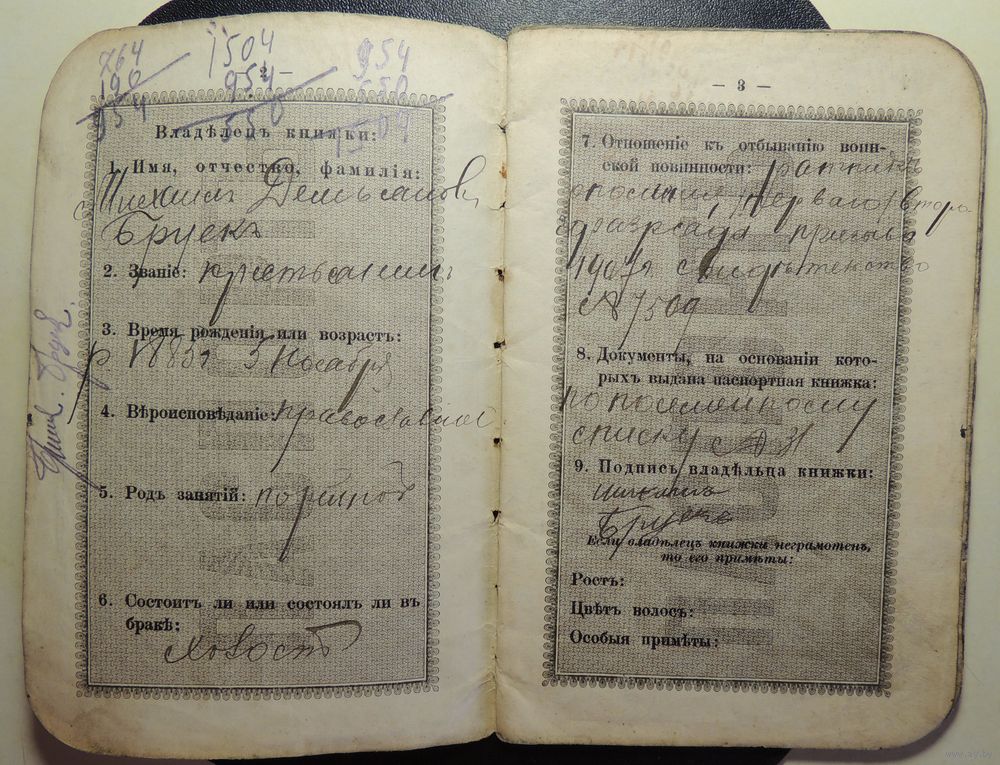 764
190
954
1504
954
550
954
550
1504
— 2 —
Владѣлецъ книжки:
1. Имя, отчество, фамилія:
Михаилъ
Брускъ
2. Званіе: крестьянинъ
3. Время рожденія или возрастъ:
р. 1885 г. 5 Ноября
4. Вѣроисповѣданіе: православное
5. Родъ занятій: портной
6. Состоитъ ли или состоялъ ли въ
бракѣ:
холостъ
— 3 —
7. Отношеніе къ отбыванію воин-
ской повинности: ратникъ
ополченія перваго
разряда призыва
1907 г. свидѣтельство
№ 7509
8. Документы, на основаніи кото-
рыхъ выдана паспортная книжка:
По посемейному
списку № 31
9. Подпись владѣльца книжки:
Михаилъ
Брускъ
Если владѣлецъ книжки неграмотенъ,
то его примѣты:
Ростъ:
Цвѣтъ волосъ:
Особыя примѣты: